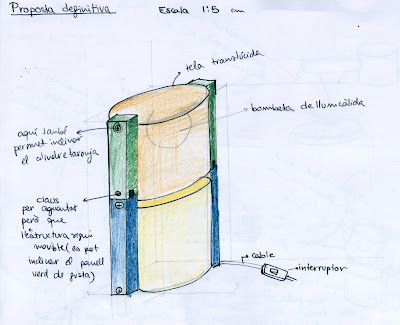 Proposta definitiva
Escala 1:5 cm
tela translúcida
bombeta de llum càlida
aquí també
permet inclinar
el cilindre taronja
claus
per aguantar
però que
l'estructura sigui
movible (es pot
inclinar el panell
verd de fusta)
cable
interruptor